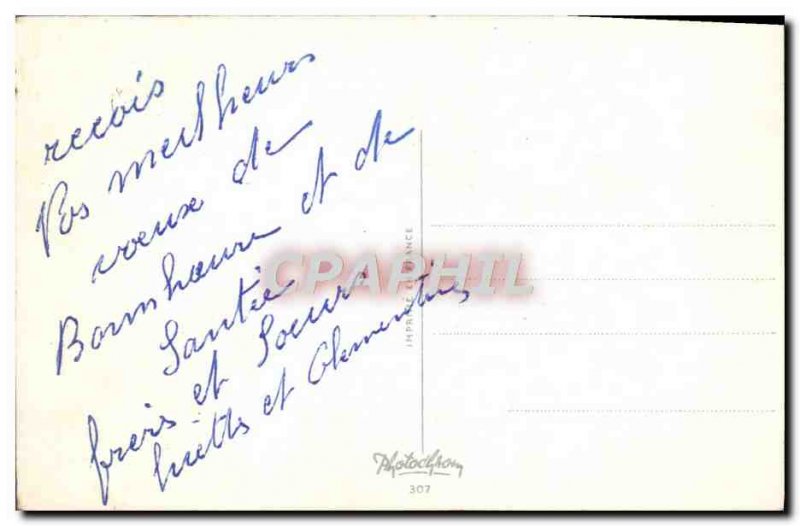 recois
Vos meilheurs
voeux de
Bonnheure et de
Santée
freis et Soeurs
et Clementines
CPAPHIL
IMPRIMÉ EN FRANCE
Photochrom
307